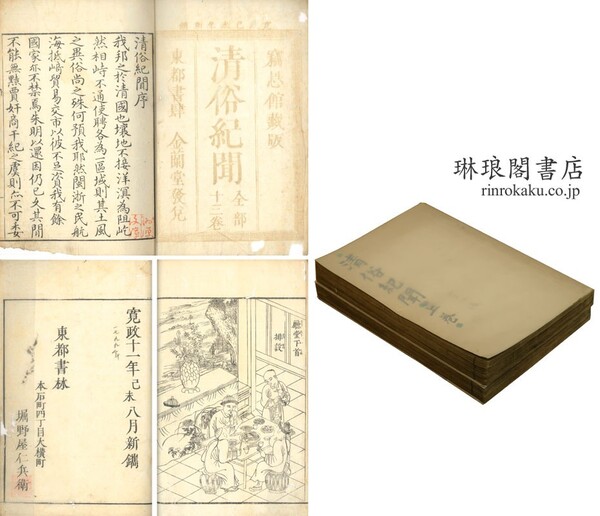 清俗紀聞序
我邦之於清國也壤地不接洋溟為阻屹
然相峙不通使聘各為一區域則其土風
之異俗尚之殊何預我耶然閩浙之民航
海抵崎貿易交市以彼不足資我有餘
國家亦不禁焉朱明以還因仍已久其間
不能無黠賈奸商干紀之虞則亦不可委
竊恐館藏版
清俗紀聞
全部
十三卷
東都書肆
金蘭堂發兌
寛政十一年己未八月新鐫
東都書林
本石町四丁目大横町
堀野屋仁兵衛
琳琅閣書店
rinrokaku.co.jp
清俗紀聞